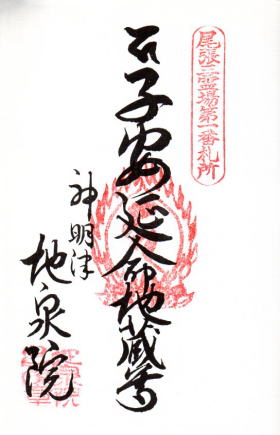 尾張三霊場第一番札所
子安延命地蔵尊
神明津
地泉院